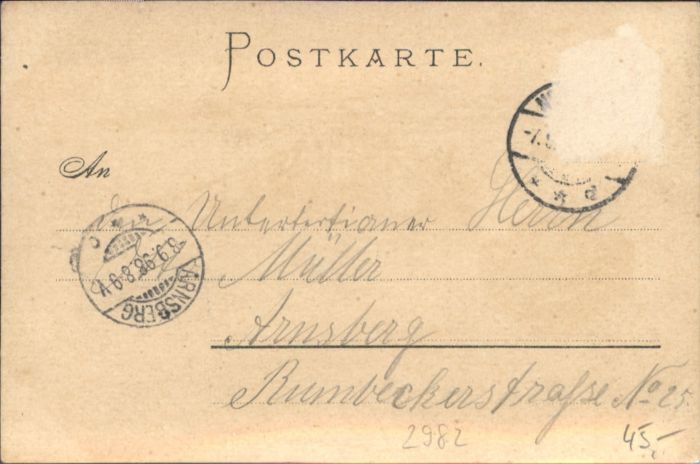 POSTKARTE.
An
den Untertertianer Herrn
Müller
Arnsberg
Rumbeckerstraße No 25.
ARNSBERG
8.9.98. 8-9 V.
* * c
-7.
* * d
2982
45,-